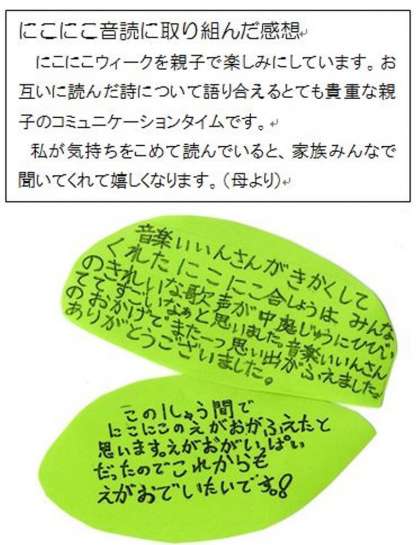 にこにこ音読に取り組んだ感想
にこにこウィークを親子で楽しみにしています。お
互いに読んだ詩について語り合えるとても貴重な親
子のコミュニケーションタイムです。
私が気持ちをこめて読んでいると、家族みんなで
聞いてくれて嬉しくなります。（母より）
音楽いいんさんがきかくして
くれたにこにこ合しょうは みんな
のきれいな歌声が中庭じゅうにひびい
ててすごいなぁと思いました。音楽いいんさん
のおかげで、また一つ思い出がふえました。
ありがとうございました。
この1しゅう間で
にこにこのえがおがふえたと
思います。えがおがいっぱい
だったのでこれからも
えがおでいたいです。!